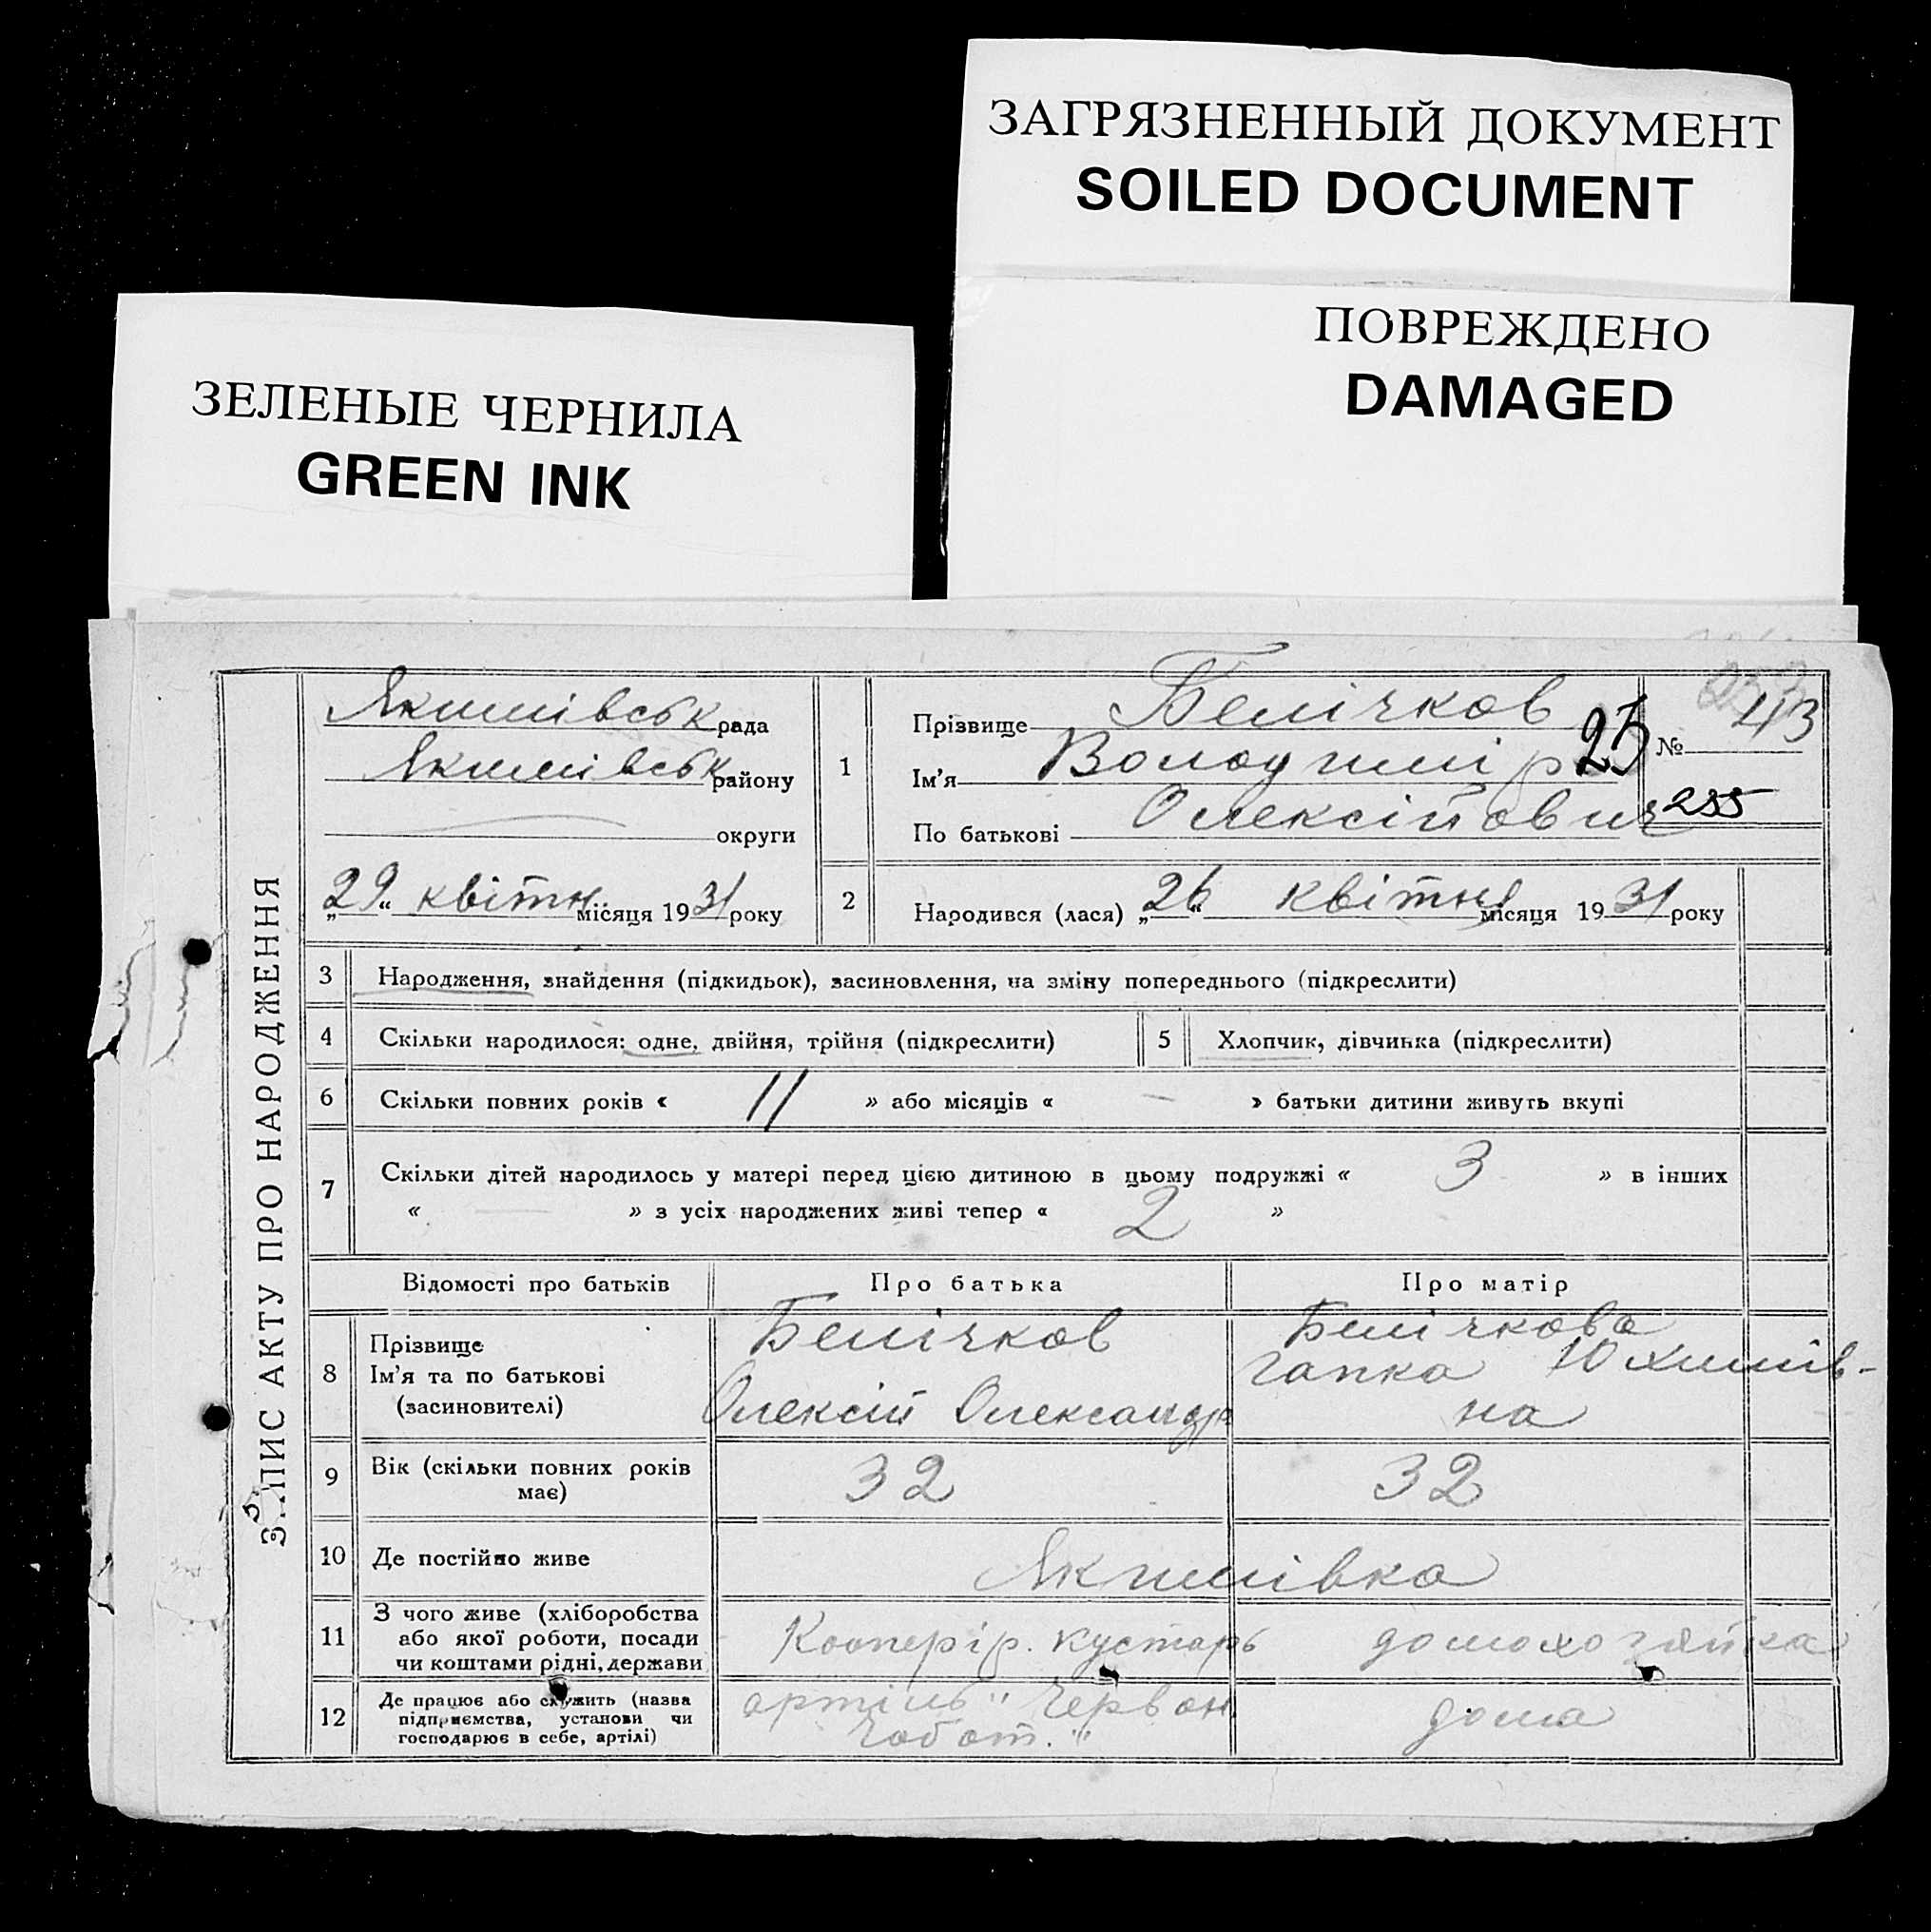 ЗАГРЯЗНЕННЫЙ ДОКУМЕНТ
SOILED DOCUMENT
ПОВРЕЖДЕНО
DAMAGED
ЗЕЛЕНЫЕ ЧЕРНИЛА
GREEN INK
ЗАПИС АКТУ ПРО НАРОДЖЕННЯ
Якимівськ рада
Якимівськ району
округи
„29“ квітн місяця 1931 року
1
Прізвище Белічков
Ім'я Володимір
По батькові Олексійович
25
№ 43
255
2
Народився (лася) „26“ квітня місяця 1931 року
3 Народження, знайдення (підкидьок), засиновлення, на зміну попереднього (підкреслити)
4 Скільки народилося: одне, двійня, трійня (підкреслити) 5 Хлопчик, дівчинка (підкреслити)
6 Скільки повних років « 11 » або місяців « — » батьки дитини живуть вкупі
7 Скільки дітей народилось у матері перед цією дитиною в цьому подружжі « 3 » в інших
« — » з усіх народжених живі тепер « 2 »
Відомості про батьків Про батька Про матір
8 Прізвище
Ім'я та по батькові
(засиновителі)
Белічков
Олексій Олександр
Белічкова
гапка Юхимів-
на
9 Вік (скільки повних років
має)
32 32
10 Де постійно живе Якимівка
11 З чого живе (хліборобства
або якої роботи, посади
чи коштами рідні, держави
Коопорір. кустарь домохозяйка
12 Де працює або служить (назва
підприємства, установи чи
господарює в себе, артілі)
артіль „Червон
Чобот."
дома